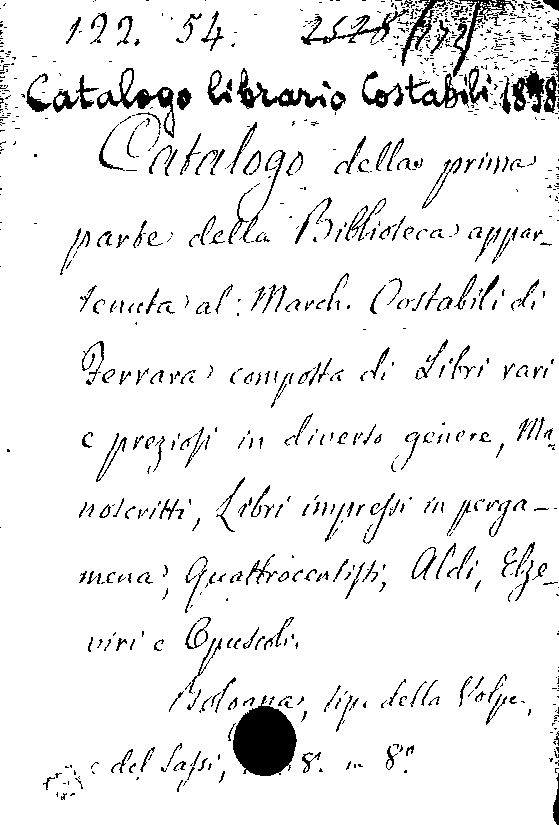 122. 54. 2528
Catalogo librario Costabili 1858
Catalogo della prima
parte della Biblioteca appar-
tenuta al March. Costabili di
Ferrara composta di Libri rari
e preziosi in diverso genere, Ma-
noscritti, Libri impressi in perga-
mena, Quattrocentisti, Aldi, Elze-
viri e Opuscoli.
Bologna, tip. della Volpe,
e del Sassi, 8. in 8.º